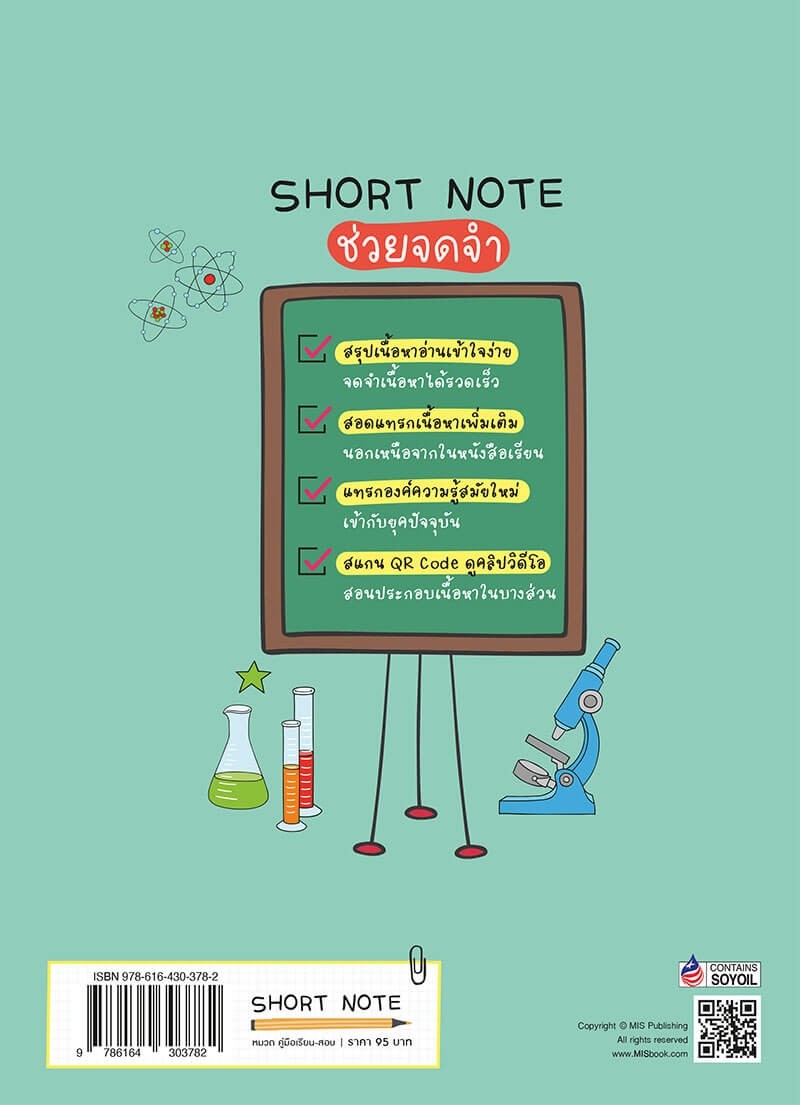 SHORT NOTE
ช่วยจดจำ
สรุปเนื้อหาอ่านเข้าใจง่าย
จดจำเนื้อหาได้รวดเร็ว
สอดแทรกเนื้อหาเพิ่มเติม
นอกเหนือจากในหนังสือเรียน
แทรกองค์ความรู้สมัยใหม่
เข้ากับยุคปัจจุบัน
สแกน QR Code ดูคลิปวิดีโอ
สอนประกอบเนื้อหาในบางส่วน
ISBN 978-616-430-378-2
9 786164 303782
SHORT NOTE
หมวด คู่มือเรียน-สอบ | ราคา 95 บาท
CONTAINS
SOYOIL
Copyright © MIS Publishing
All rights reserved
www.MISbook.com